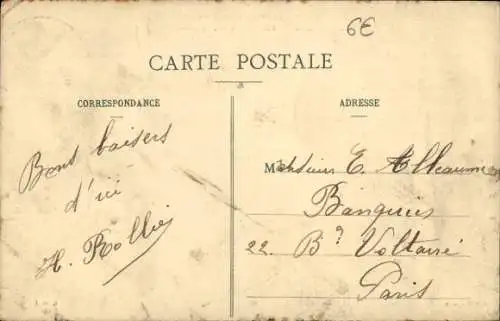 6€
CARTE POSTALE
CORRESPONDANCE
ADRESSE
Bons baisers
d'ici
H. Rollin
Monsieur E. Alleaume
Banquier
22. Bd Voltaire
Paris